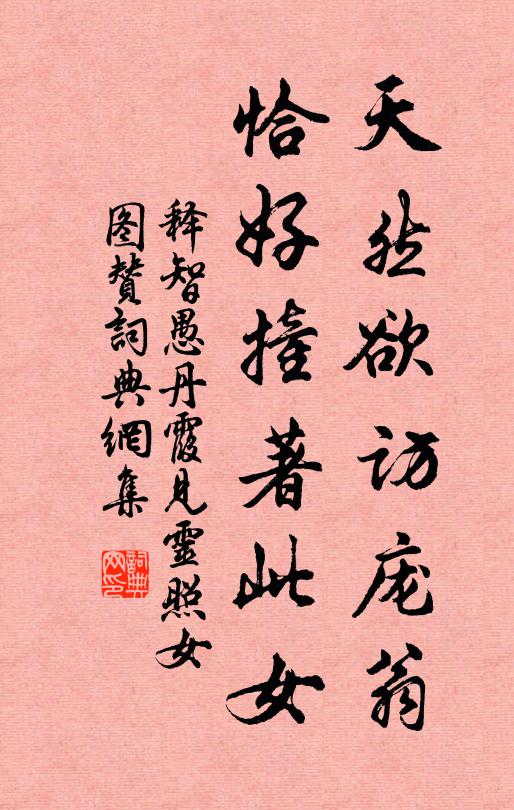 天然欲访庞翁
恰好撞著此女
释智愚丹霞见靈照女
图赞詞典網集
詞典网印